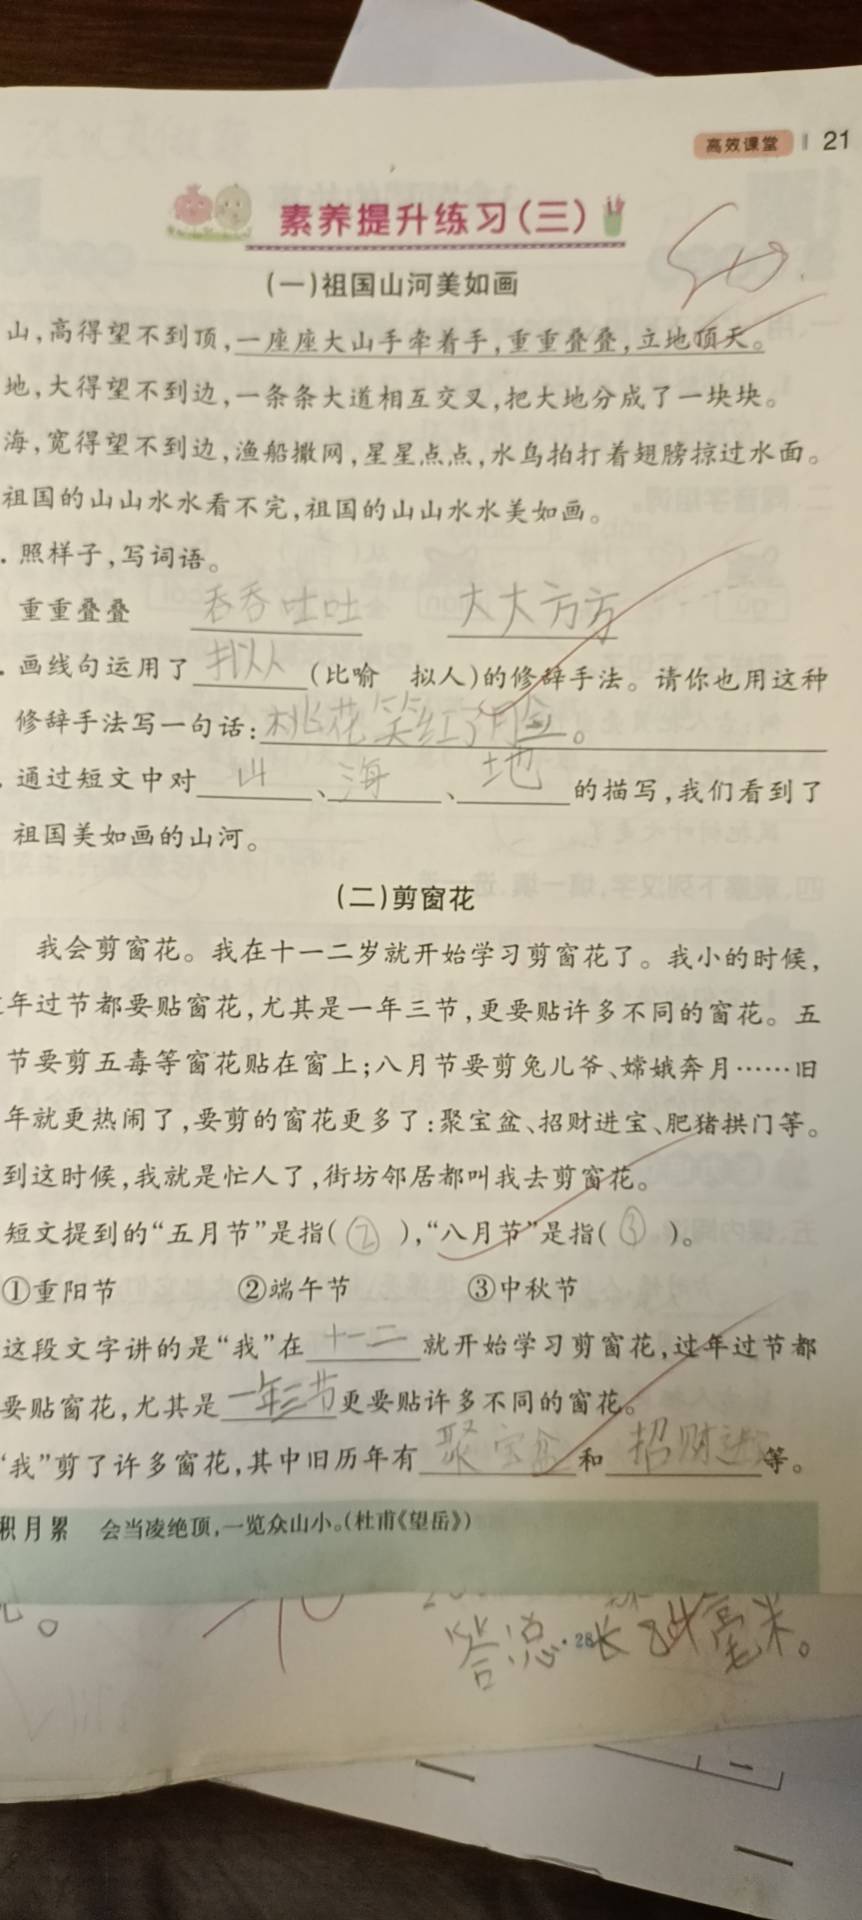 高效课堂 21
素养提升练习(三)
(一)祖国山河美如画
山,高得望不到顶,一座座大山手牵着手,重重叠叠,立地顶天。
地,大得望不到边,一条条大道相互交叉,把大地分成了一块块。
海,宽得望不到边,渔船撒网,星星点点,水鸟拍打着翅膀掠过水面。
祖国的山山水水看不完,祖国的山山水水美如画。
.照样子,写词语。
重重叠叠 吞吞吐吐 大大方方
.画线句运用了拟人(比喻 拟人)的修辞手法。请你也用这种
修辞手法写一句话:桃花笑红了脸。
.通过短文中对山、海、地的描写,我们看到了
祖国美如画的山河。
(二)剪窗花
我会剪窗花。我在十一二岁就开始学习剪窗花了。我小的时候,
年过节都要贴窗花,尤其是一年三节,更要贴许多不同的窗花。五
节要剪五毒等窗花贴在窗上;八月节要剪兔儿爷、嫦娥奔月……旧
年就更热闹了,要剪的窗花更多了:聚宝盆、招财进宝、肥猪拱门等。
到这时候,我就是忙人了,街坊邻居都叫我去剪窗花。
短文提到的“五月节”是指(②),“八月节”是指(③)。
①重阳节 ②端午节 ③中秋节
这段文字讲的是“我”在十一二就开始学习剪窗花,过年过节都
要贴窗花,尤其是一年三节更要贴许多不同的窗花。
“我”剪了许多窗花,其中旧历年有聚宝盆和招财进等。
积月累 会当凌绝顶,一览众山小。(杜甫《望岳》)
答:总长84毫米。
·28